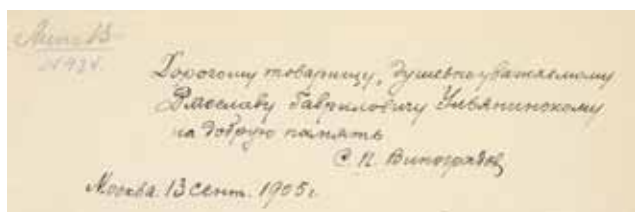 Дорогому товарищу, душевноуважаемому
Владиславу Гавриловичу Ульянинскому
на добрую память
С. П. Виноградов
Москва. 13 сент. 1905 г.